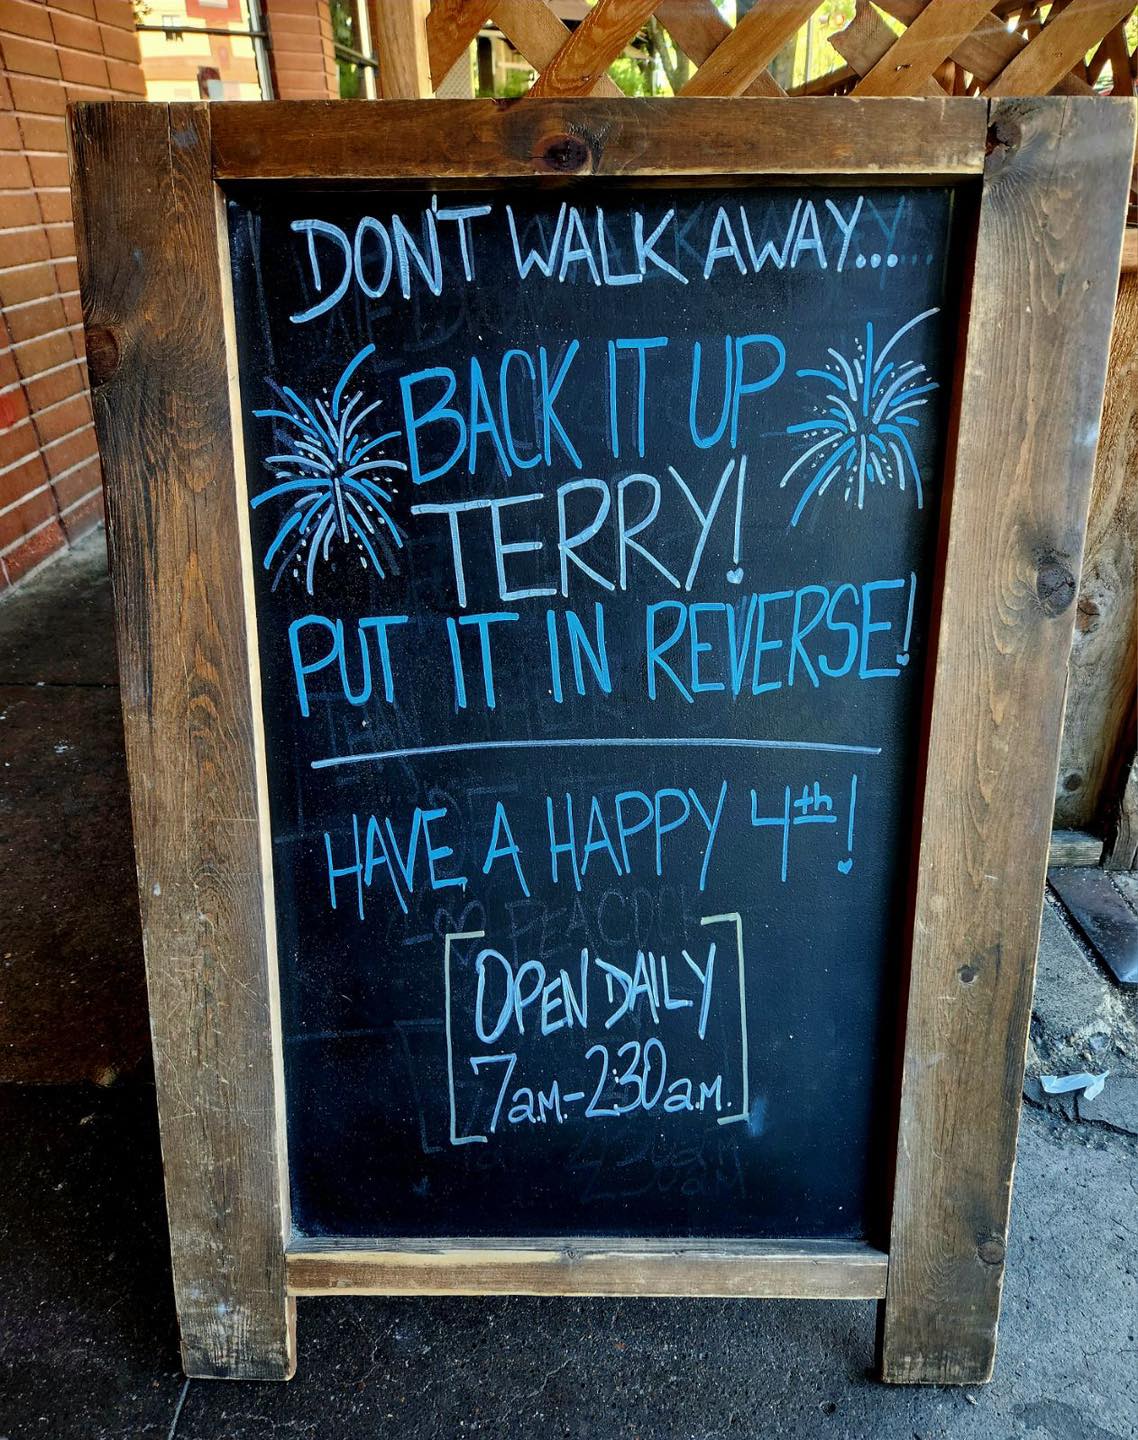 DON'T WALK AWAY...
BACK IT UP
TERRY!
PUT IT IN REVERSE!
HAVE A HAPPY 4th!
OPEN DAILY
7a.M.-2:30a.M.